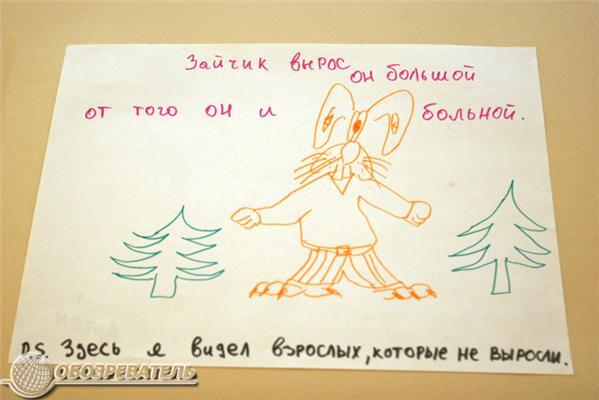 Зайчик вырос он большой
от того он и больной.
P.S. Здесь я видел взрослых, которые не выросли.
ОБОЗРЕВАТЕЛЬ